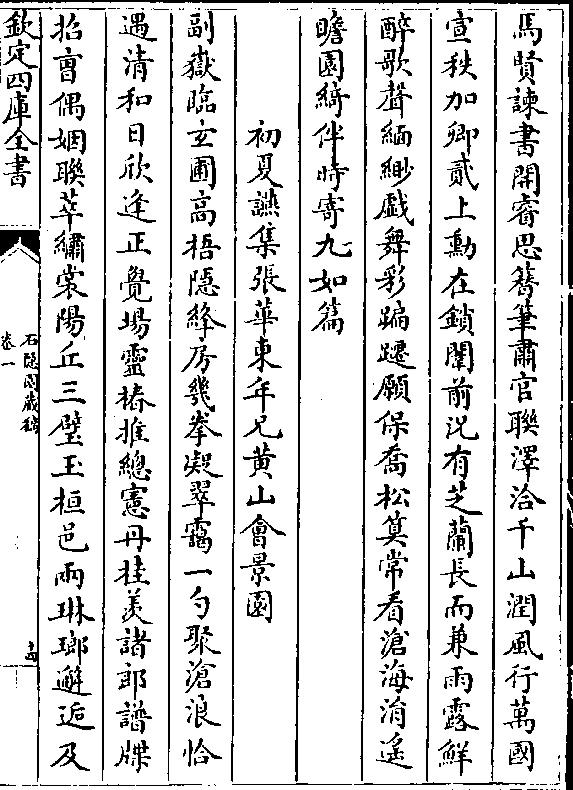 馬賢諫書開睿思簪筆肅官聯澤洽千山潤風行萬國
宣秩加卿貳上勳在鎖闈前況有芝蘭長而兼雨露鮮
醉歌聲緬緲戲舞彩蹁躚願保喬松算常看滄海涓遙
瞻園綺伴時寄九如篇
初夏讌集張華東年兄黄山會景園
副嶽臨玄圃高梧隱絳房幾拳凝翠靄一勺聚滄浪恰
遇清和日欣逢正覺場靈椿推總憲丹桂羙諸郎譜牒
招㑹偶姻聯萃繡裳陽丘三璧玉桓邑兩琳瑯邂逅及
欽定四庫全書
石隱園藏稿
卷一